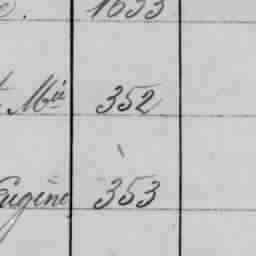 1633
Mie 352
Eugène 353